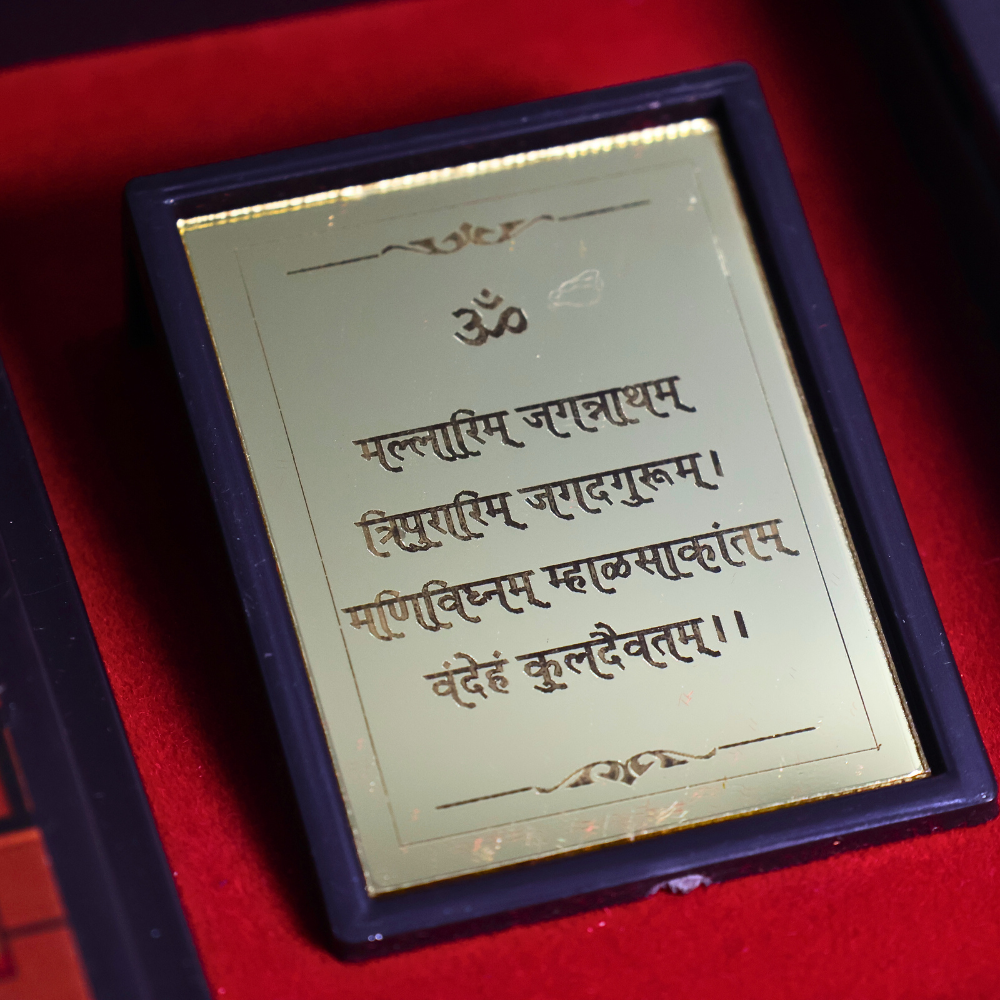 ॐ
मल्लारिम् जगन्नाथम्
त्रिपुरारिम् जगदगुरूम्।
मणिविघ्नम् म्हाळसाकांतम्
वंदेहं कुलदैवतम्।।